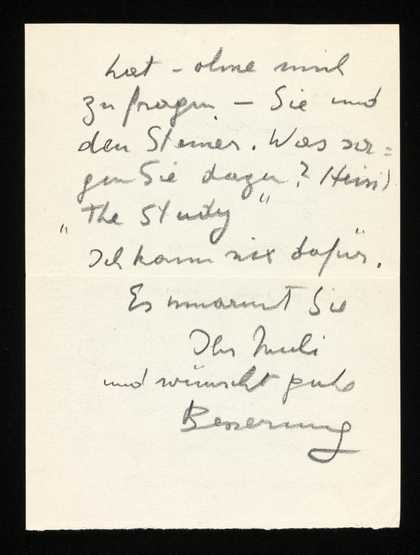 hat – ohne mich
zu fragen – Sie und
den Steiner. Was sa=
gen Sie dazu?
"The Study"
Ich kann nix dafür.
Es umarmt Sie
Ihr
und wünscht gute
Besserung